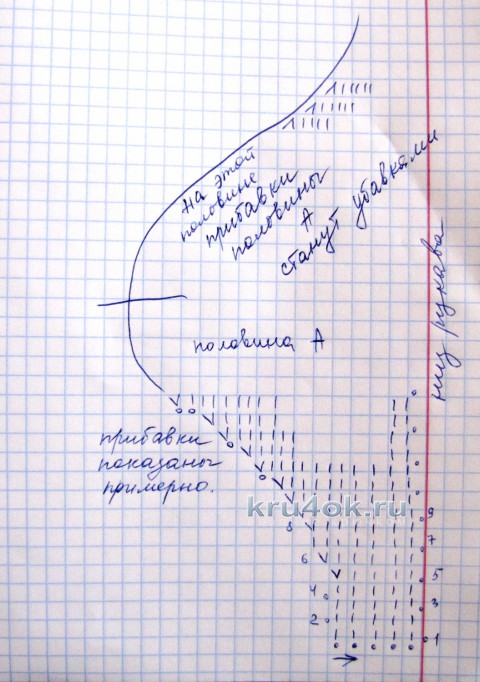 На этой
половине
прибавки
половины
А
станут убавками
низ рукава
половина А
прибавки
показаны
примерно.
kru4ok.ru
8
9
7
6
5
4
3
2
1